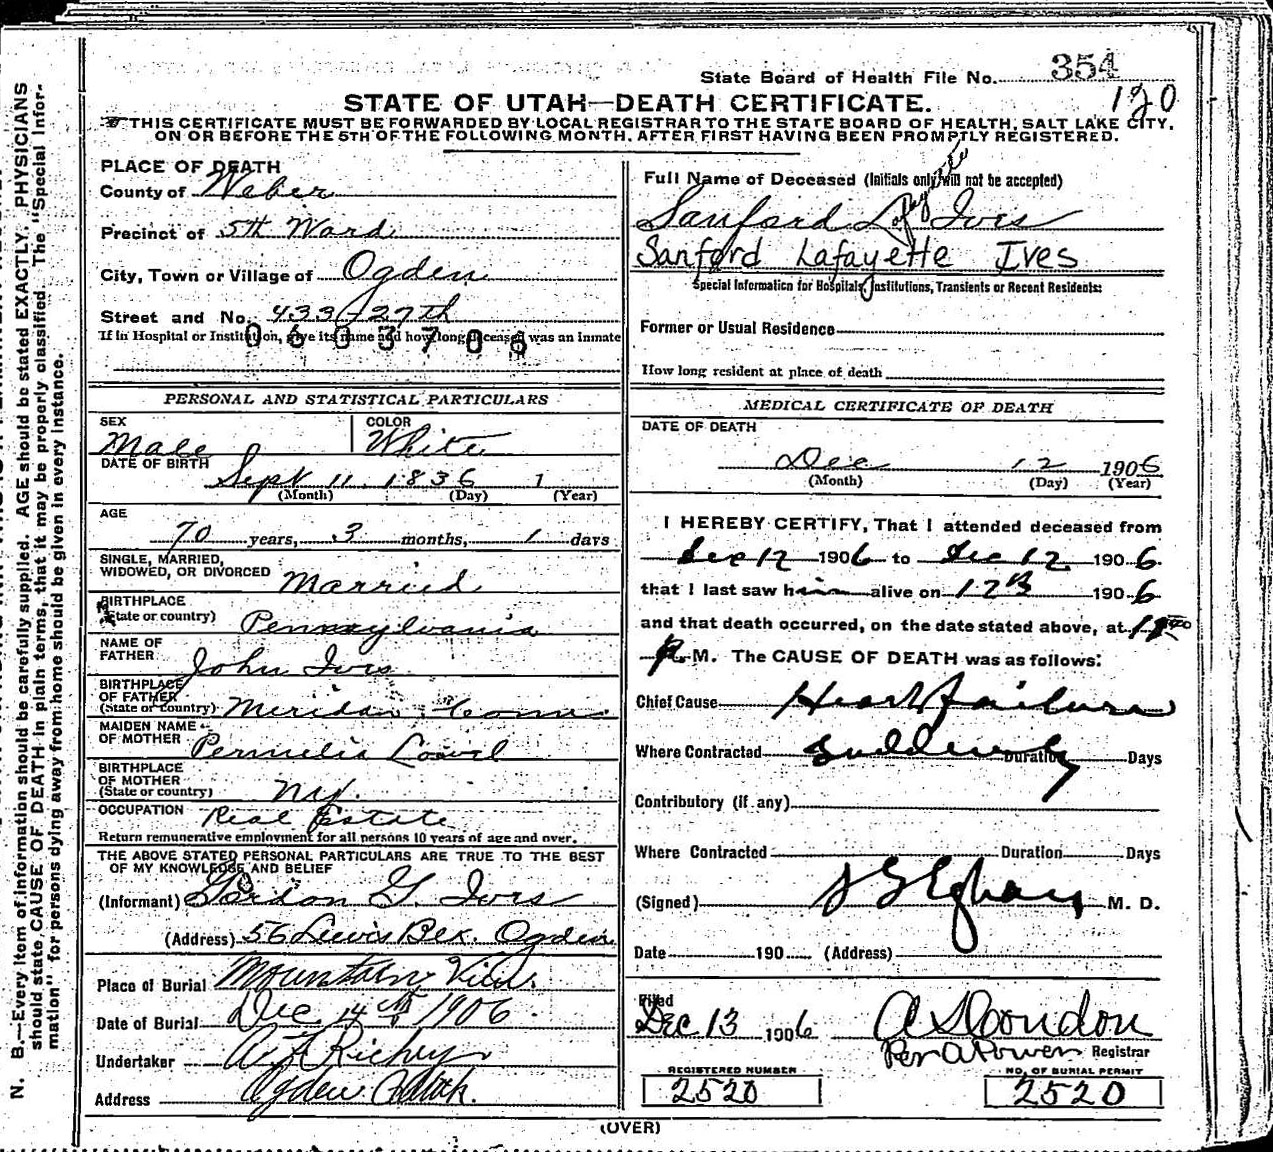 State Board of Health File No. 354
120
STATE OF UTAH—DEATH CERTIFICATE.
THIS CERTIFICATE MUST BE FORWARDED BY LOCAL REGISTRAR TO THE STATE BOARD OF HEALTH, SALT LAKE CITY,
ON OR BEFORE THE 5TH OF THE FOLLOWING MONTH, AFTER FIRST HAVING BEEN PROMPTLY REGISTERED.
PLACE OF DEATH
County of Weber
Precinct of 5th Ward
City, Town or Village of Ogden
Street and No. 433 27th
If in Hospital or Institution, give its name and how long deceased was an inmate
0603708
PERSONAL AND STATISTICAL PARTICULARS
SEX
Male
COLOR
White
DATE OF BIRTH
Sept 11 1836 1
(Month) (Day) (Year)
AGE
70 years, 3 months, 1 days
SINGLE, MARRIED,
WIDOWED, OR DIVORCED Married
BIRTHPLACE
(State or country) Pennsylvania
NAME OF
FATHER John Ives
BIRTHPLACE
OF FATHER
(State or country) Meridan Conn
MAIDEN NAME
OF MOTHER Permelia
BIRTHPLACE
OF MOTHER
(State or country) NY.
OCCUPATION Real Estate
Return remunerative employment for all persons 10 years of age and over.
THE ABOVE STATED PERSONAL PARTICULARS ARE TRUE TO THE BEST
OF MY KNOWLEDGE AND BELIEF
(Informant) Gordon G. Ives
(Address) 56 Lewis Bex. Ogden
Place of Burial Mountain View.
Date of Burial Dec 14th 1906.
Undertaker Richey
Address Ogden Utah.
Full Name of Deceased (Initials only will not be accepted)
Sanford Lafayette Ives
Sanford Lafayette Ives
Special Information for Hospitals, Institutions, Transients or Recent Residents:
Former or Usual Residence
How long resident at place of death
MEDICAL CERTIFICATE OF DEATH
DATE OF DEATH
Dec 12 1906
(Month) (Day) (Year)
I HEREBY CERTIFY, That I attended deceased from
Dec 12 1906 to Dec 12 1906
that I last saw him alive on 12th 1906
and that death occurred, on the date stated above, at
P. M. The CAUSE OF DEATH was as follows:
Chief Cause Heart failure
Where Contracted Suddenly Duration Days
Contributory (if any)
Where Contracted Duration Days
(Signed) M. D.
Date 190 (Address)
Filed
Dec 13 1906 A S Condon
Per A Power Registrar
REGISTERED NUMBER
2520
NO. OF BURIAL PERMIT
2520
(OVER)
N. B.—Every item of information should be carefully supplied. AGE should be stated EXACTLY. PHYSICIANS
should state CAUSE OF DEATH in plain terms, that it may be properly classified. The "Special Infor-
mation" for persons dying away from home should be given in every instance.